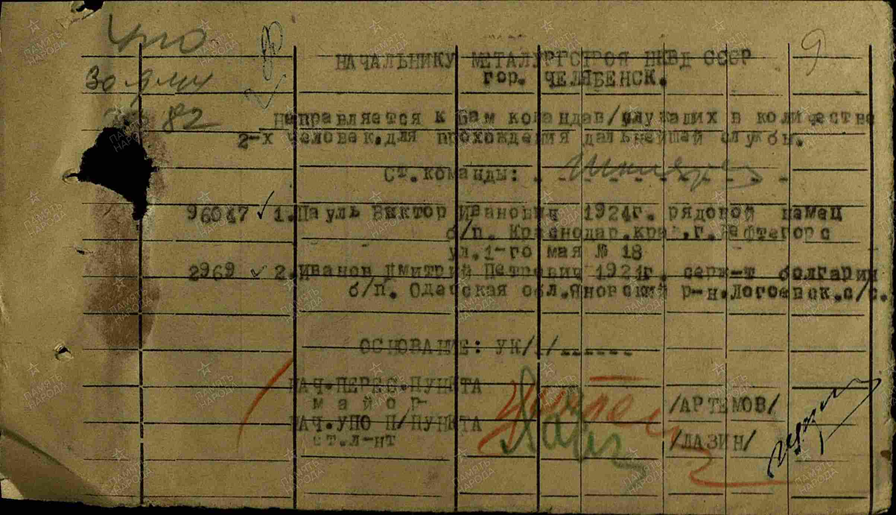 УПО
НАЧАЛЬНИКУ МЕТАЛУРГСТРОЯ НКВД СССР
гор. ЧЕЛЯБЕНСК.
82
Направляется к Вам командав/служащих в количестве
2-х человек.для прохождения дальнейшей службы.
Ст.команды:
96047 ✓ 1.Пауль Виктор Иванович 1924г. рядовой немец
б/п. Краснодар.край.г.Нефтегорс
ул.1-го мая № 18
2969 ✓ 2.Иванов Дмитрий Петрович 1921г. серж-т болгарин
б/п. Одесская обл.Яновский р-н.Логоевск.с/с.
ОСНОВАНИЕ: УК/1/------
НАЧ.ПЕРЕС.ПУНКТА
майор /АРТЕМОВ/
НАЧ.УПО П/ПУНКТА
ст.л-нт /ЛАЗИН/
ПАМЯТЬ НАРОДА